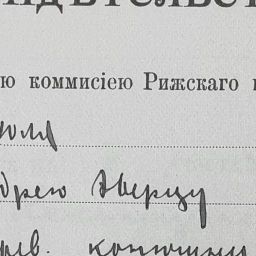 ИДѢТЕЛЬСТ
ю коммисіею Рижскаго
юля
дрею Зверцу
рев. конюшни